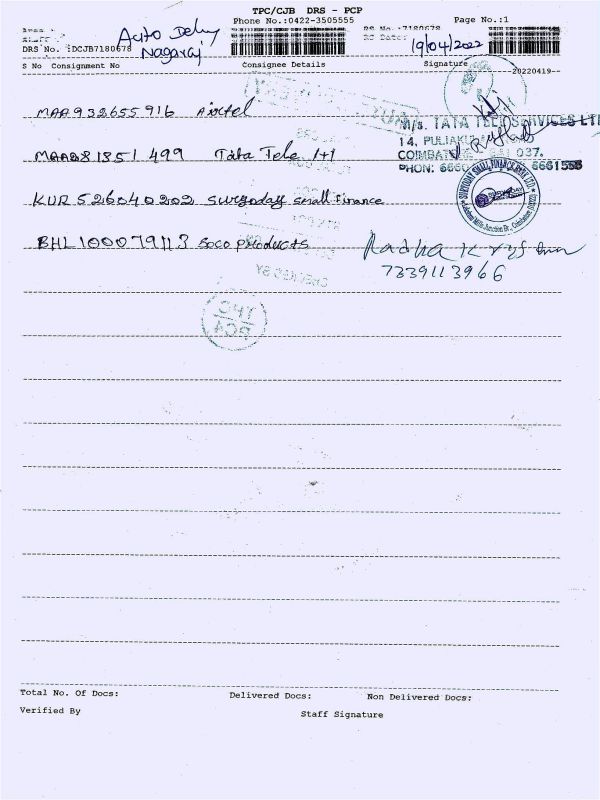 TPC/CJB DRS - PCP
Phone No.:0422-3505555 Page No.:1
Auto Delry
Nagaraj
RS No.:7180678
RS Date:
19/04/2022
DRS No. :DCJB7180678
S No Consignment No Consignee Details Signature
20220419
MAA932655916 Airtel
M/s. TATA TELESERVICES LTD
14, PULIAKULAM
COIMBATORE 641 037.
MAA281851499 Tata Tele 1+1
PHON: 6660 6661555
SURYODAY SMALL FINANCE BANK LTD.
Lakshmi Mills Junction Br., Coimbatore
KUR526040202 Suryoday Small Finance
BHL100079113 Soco Products Radha Krishnan
7339113966
CHECKED BY
TPC
Total No. Of Docs: Delivered Docs: Non Delivered Docs:
Verified By Staff Signature